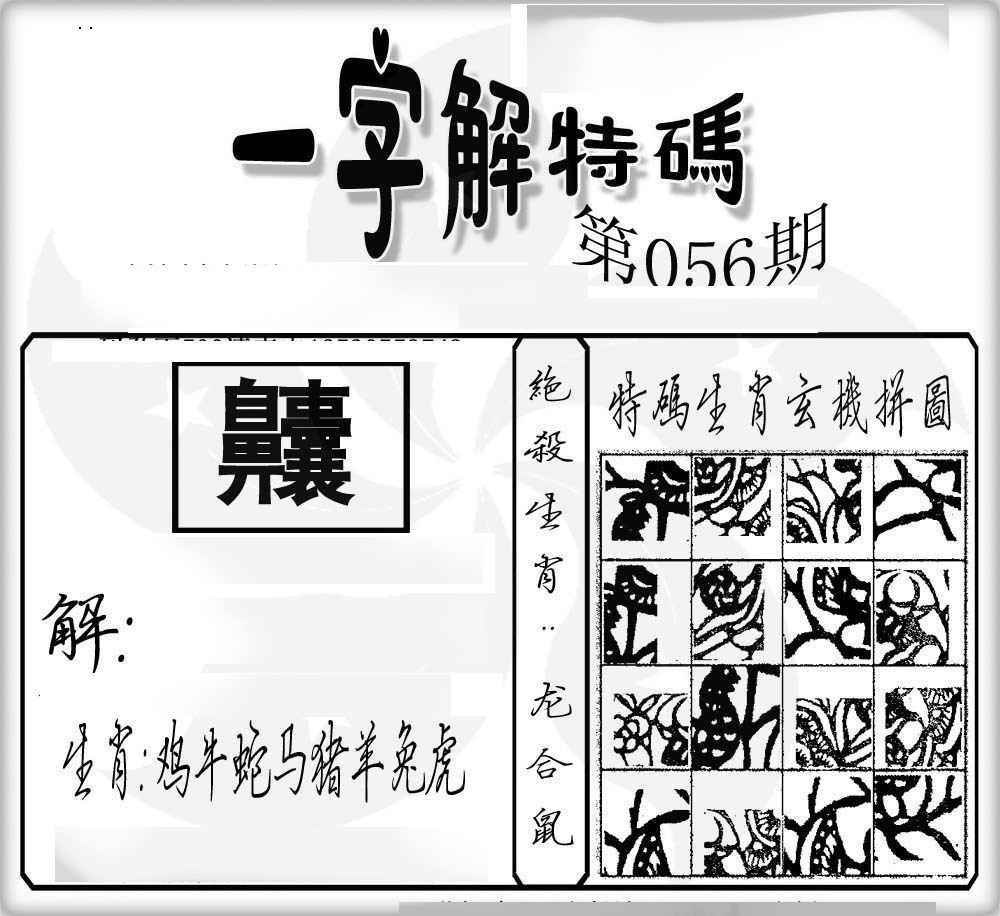 一字解特碼
第056期
齉
解:
生肖:鸡牛蛇马猪羊兔虎
絶殺生肖:龙合鼠
特碼生肖玄機拼圖